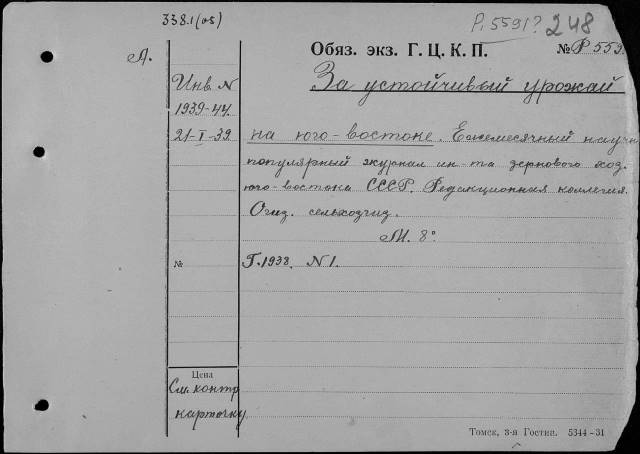 338.1(05)
Р. 5591? 248
А.
Обяз. экз. Г. Ц. К. П. № Р 559
За устойчивый урожай
Инв. N
1939-44.
21-I-39.
на юго-востоке. Ежемесячный научн
популярный журнал ин-та зернового хоз.
юго-востока СССР. Редакционная коллегия.
Огиз. сельхозгиз.
М. 8°
№
Г. 1938. N 1.
Цена
См. контр
карточку
Томск, 3-я Гостип. 5344-31